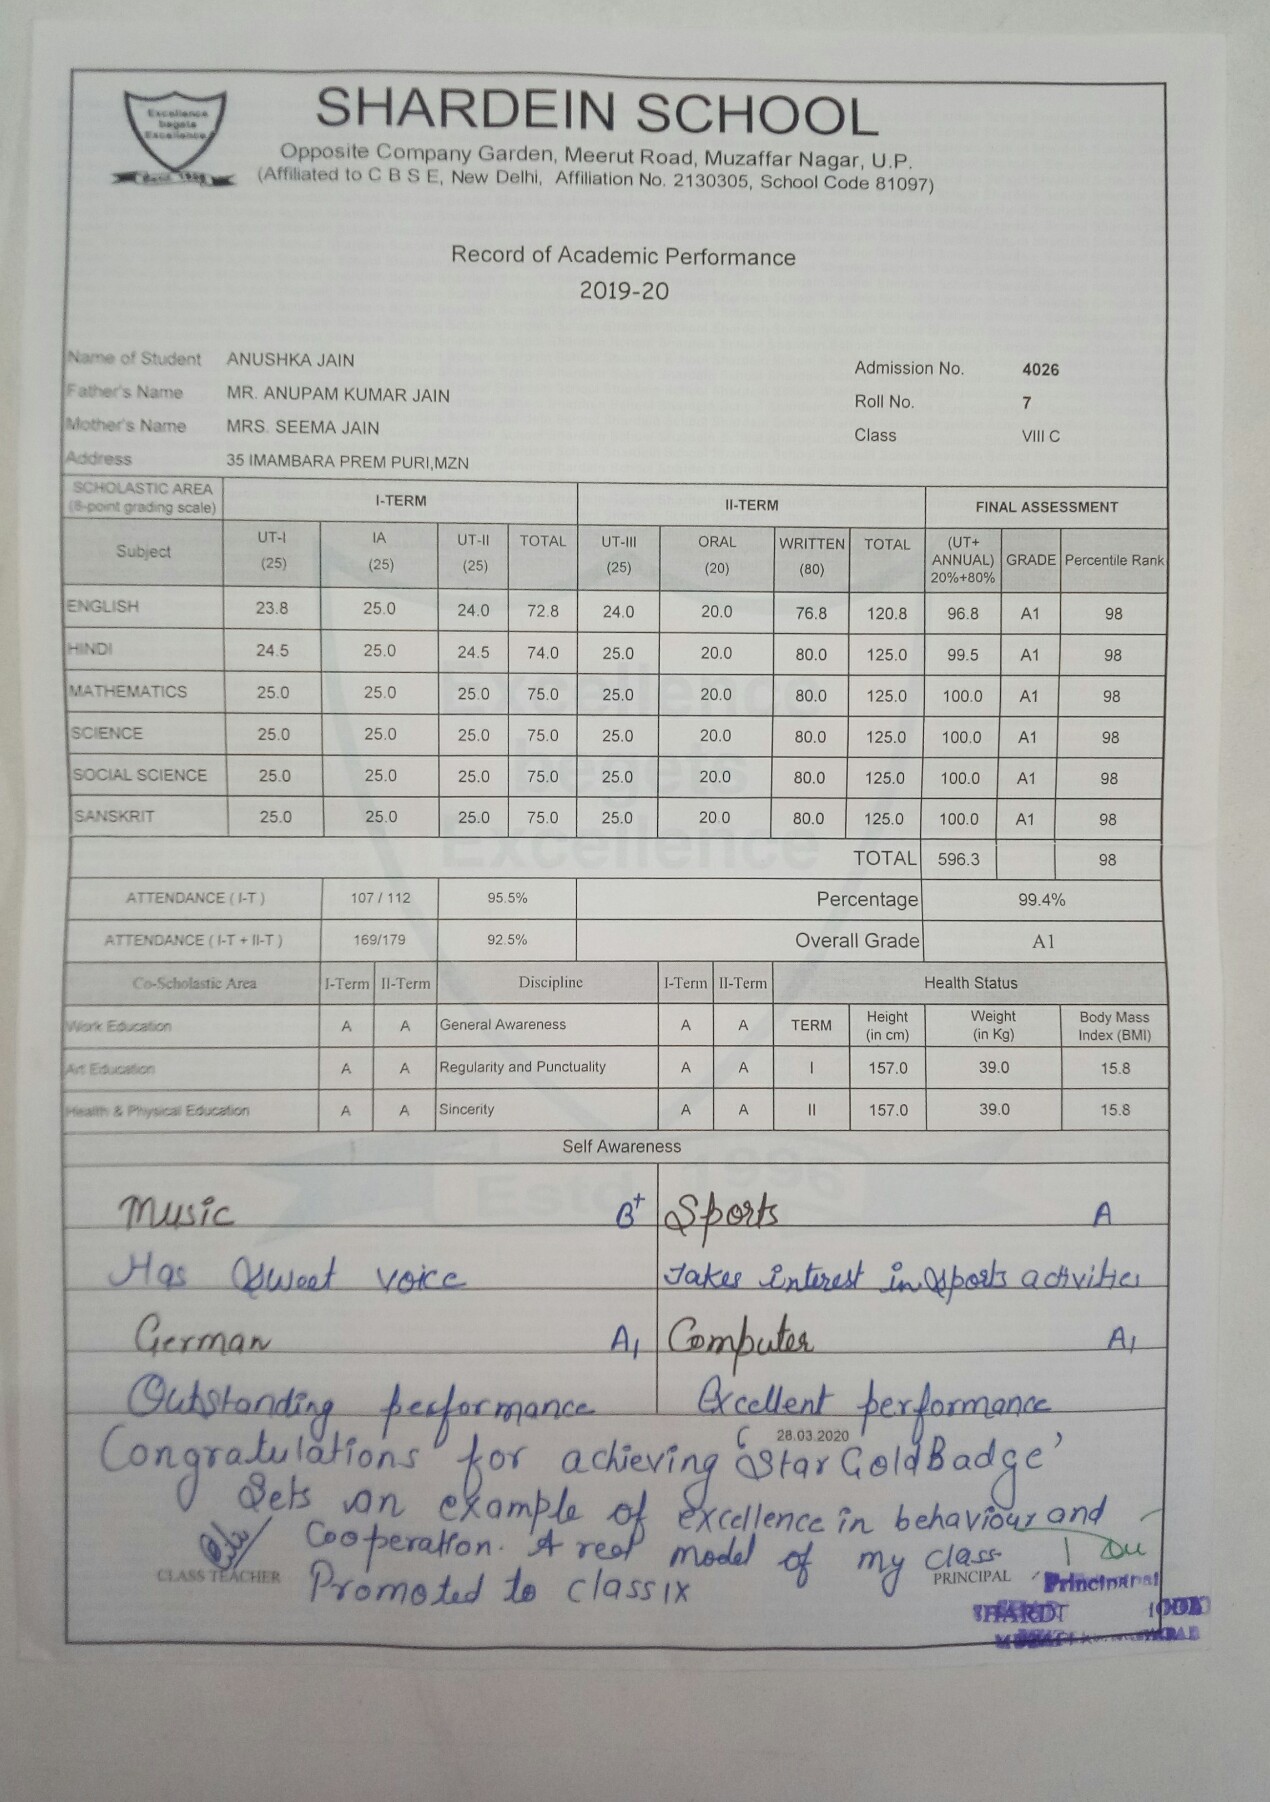 Excellence
begets
Excellence
Estd. 1996
SHARDEIN SCHOOL
Opposite Company Garden, Meerut Road, Muzaffar Nagar, U.P.
(Affiliated to C B S E, New Delhi, Affiliation No. 2130305, School Code 81097)
Record of Academic Performance
2019-20
Name of Student ANUSHKA JAIN
Admission No. 4026
Father's Name MR. ANUPAM KUMAR JAIN
Roll No. 7
Mother's Name MRS. SEEMA JAIN
Class VIII C
Address 35 IMAMBARA PREM PURI,MZN
SCHOLASTIC AREA I-TERM II-TERM FINAL ASSESSMENT
(8-point grading scale)
Subject UT-I (25) IA (25) UT-II (25) TOTAL UT-III (25) ORAL (20) WRITTEN (80) TOTAL (UT+ ANNUAL) 20%+80% GRADE Percentile Rank
ENGLISH 23.8 25.0 24.0 72.8 24.0 20.0 76.8 120.8 96.8 A1 98
HINDI 24.5 25.0 24.5 74.0 25.0 20.0 80.0 125.0 99.5 A1 98
MATHEMATICS 25.0 25.0 25.0 75.0 25.0 20.0 80.0 125.0 100.0 A1 98
SCIENCE 25.0 25.0 25.0 75.0 25.0 20.0 80.0 125.0 100.0 A1 98
SOCIAL SCIENCE 25.0 25.0 25.0 75.0 25.0 20.0 80.0 125.0 100.0 A1 98
SANSKRIT 25.0 25.0 25.0 75.0 25.0 20.0 80.0 125.0 100.0 A1 98
TOTAL 596.3 98
ATTENDANCE ( I-T ) 107 / 112 95.5% Percentage 99.4%
ATTENDANCE ( I-T + II-T ) 169/179 92.5% Overall Grade A1
Co-Scholastic Area I-Term II-Term Discipline I-Term II-Term Health Status
Work Education A A General Awareness A A TERM Height (in cm) Weight (in Kg) Body Mass Index (BMI)
Art Education A A Regularity and Punctuality A A I 157.0 39.0 15.8
Health & Physical Education A A Sincerity A A II 157.0 39.0 15.8
Self Awareness
Music B+ Sports A
Has Sweet voice Takes interest in sports activities
German A1 Computer A1
Outstanding performance Excellent performance
28.03.2020
Congratulations for achieving 'Star Gold Badge'
Sets an example of excellence in behaviour and
Cooperation. A reol model of my class
CLASS TEACHER Promoted to class IX PRINCIPAL Principal